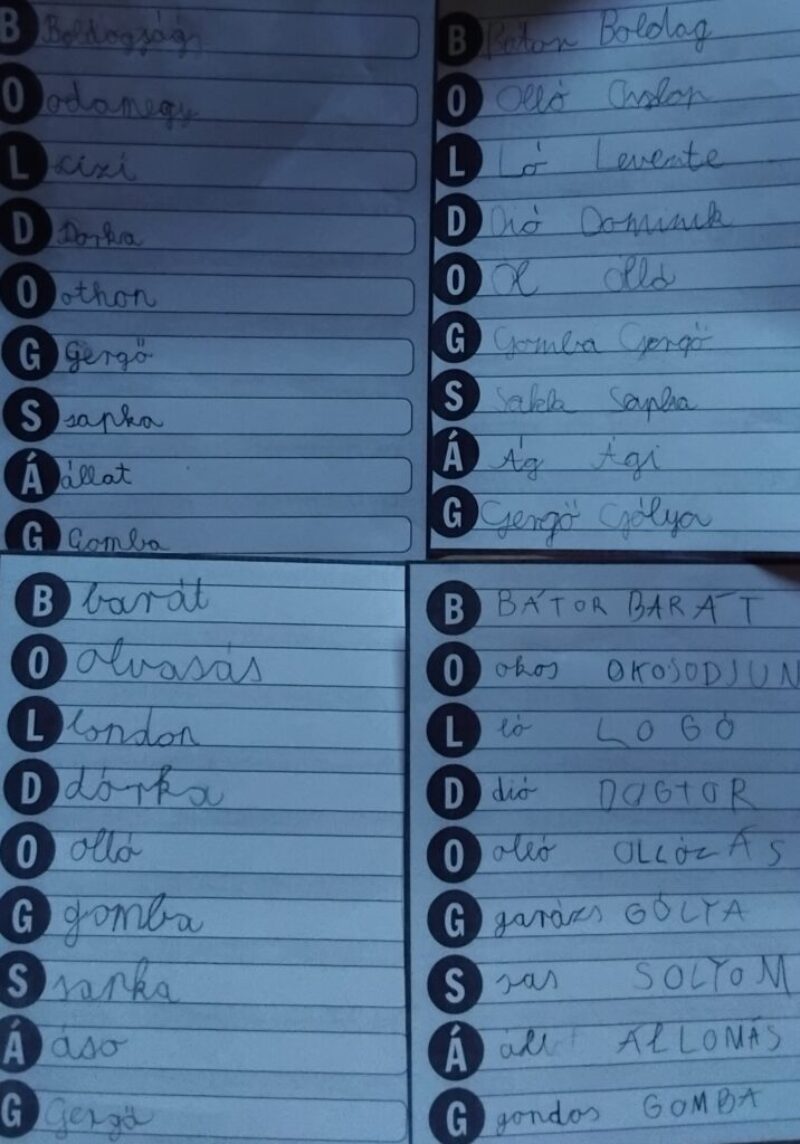 B Boldogság
O odamegy
L Lizi
D Dorka
O othon
G Gergő
S sapka
Á állat
G Gomba
B Bátor Boldog
O Olló Oroszlán
L Ló Levente
D Dió Dominik
O Ól olló
G Gomba Gergő
S Sakk Sapka
Á Ág Ági
G Gergő Gólya
B barát
O olvasás
L london
D dórka
O olló
G gomba
S sapka
Á áso
G Gergő
B BÁTOR BARÁT
O okos OKOSODJUN
L ló LOGÓ
D dió DOGTOR
O olló OLLÓZÁS
G garázs GÓLYA
S sas SOLYOM
Á áll ÁLLOMÁS
G gondos GOMBA